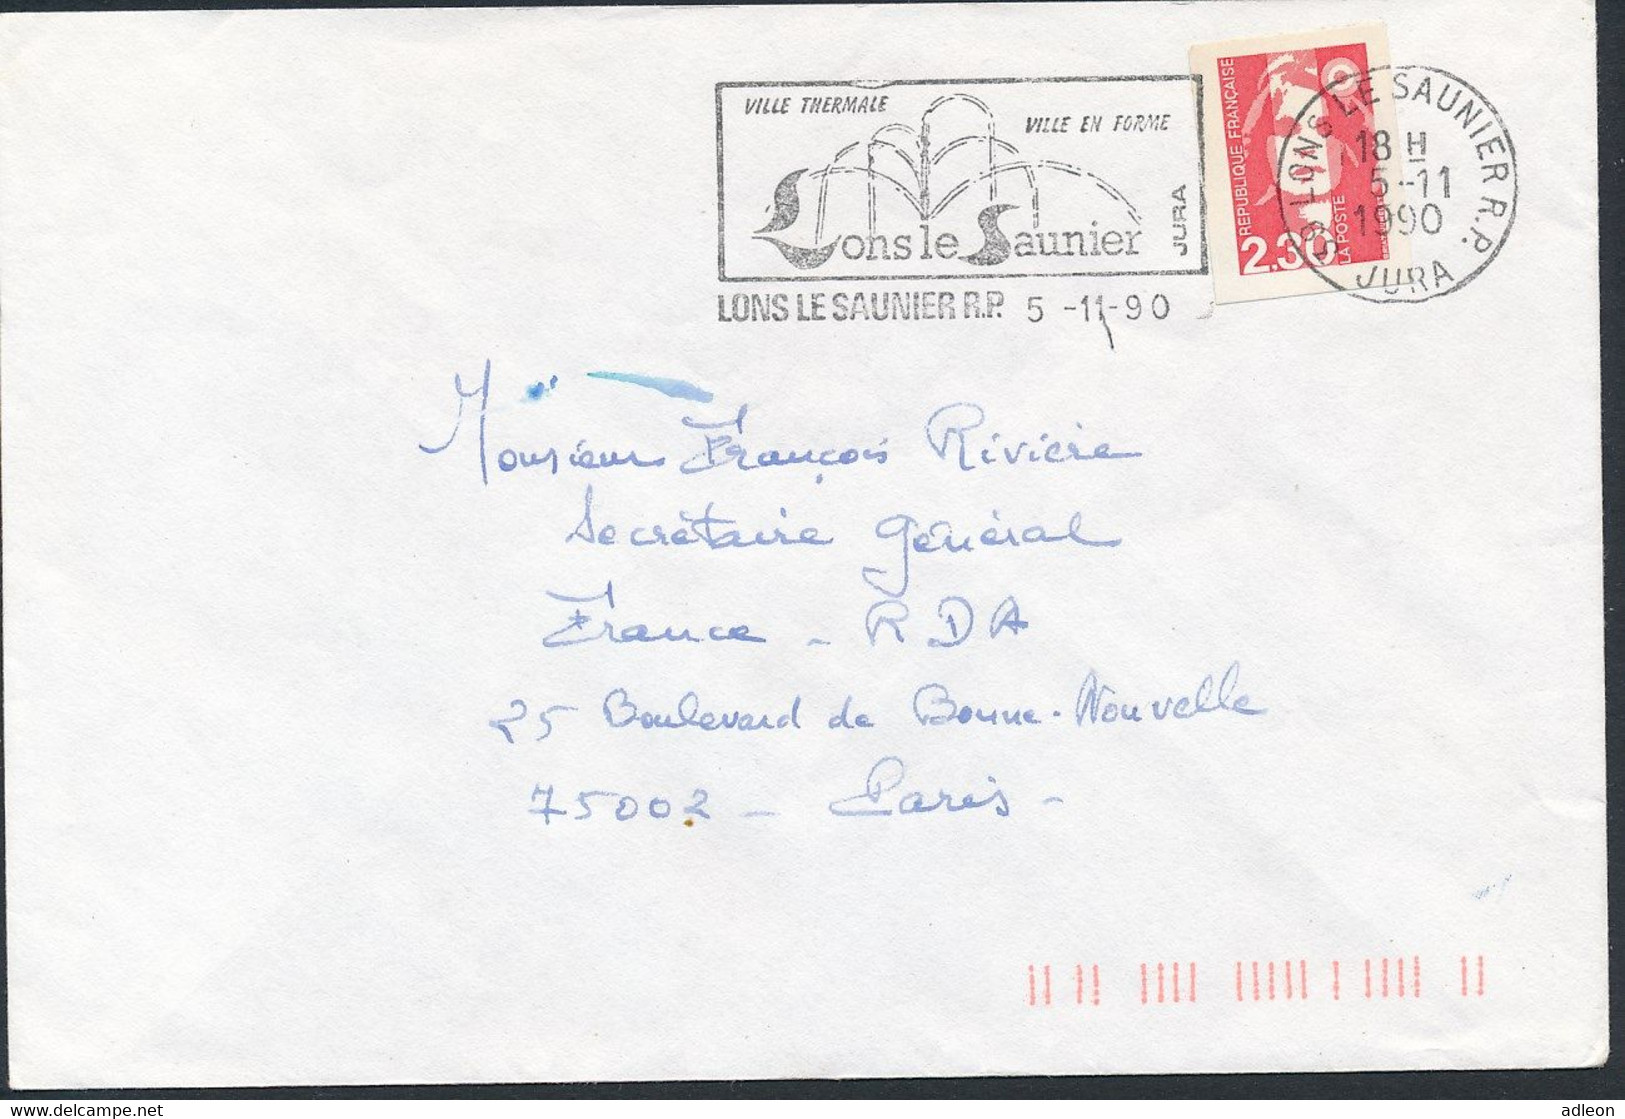 VILLE THERMALE
VILLE EN FORME
Lons le Saunier
JURA
LONS LE SAUNIER R.P. 5 -11-90
REPUBLIQUE FRANÇAISE
2.30
LA POSTE
39 LONS LE SAUNIER R.P.
18 H
5-11
1990
JURA
Monsieur François Rivière
Secrétaire Général
France - RDA
25 Boulevard de Bonne-Nouvelle
75002 - Paris -
delcampe.net
adleon